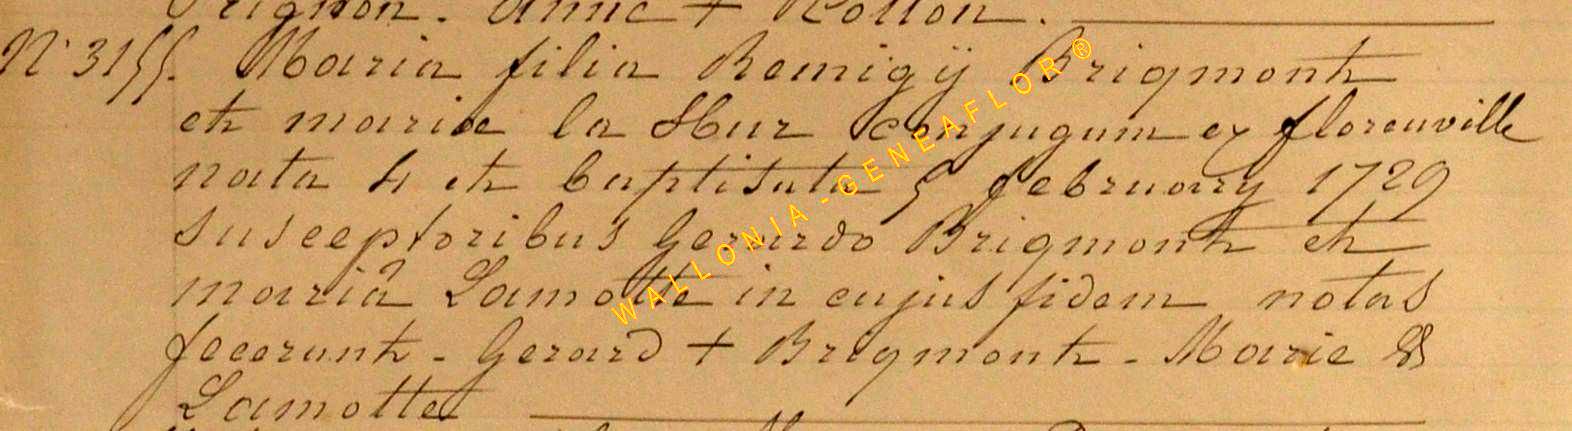 Prignon. Anne + Rollon.
N° 3155. Maria filia Remigÿ Brigmont
et mariae la Hur conjugum ex florenville
nata 4 et baptisata 5 february 1729
susceptoribus Gerardo Brigmont et
mariâ Lamotte in cujus fidem notas
fecerunt - Gerard + Brigmont - Marie
Lamotte
WALLONIA-GENEAFLOR®